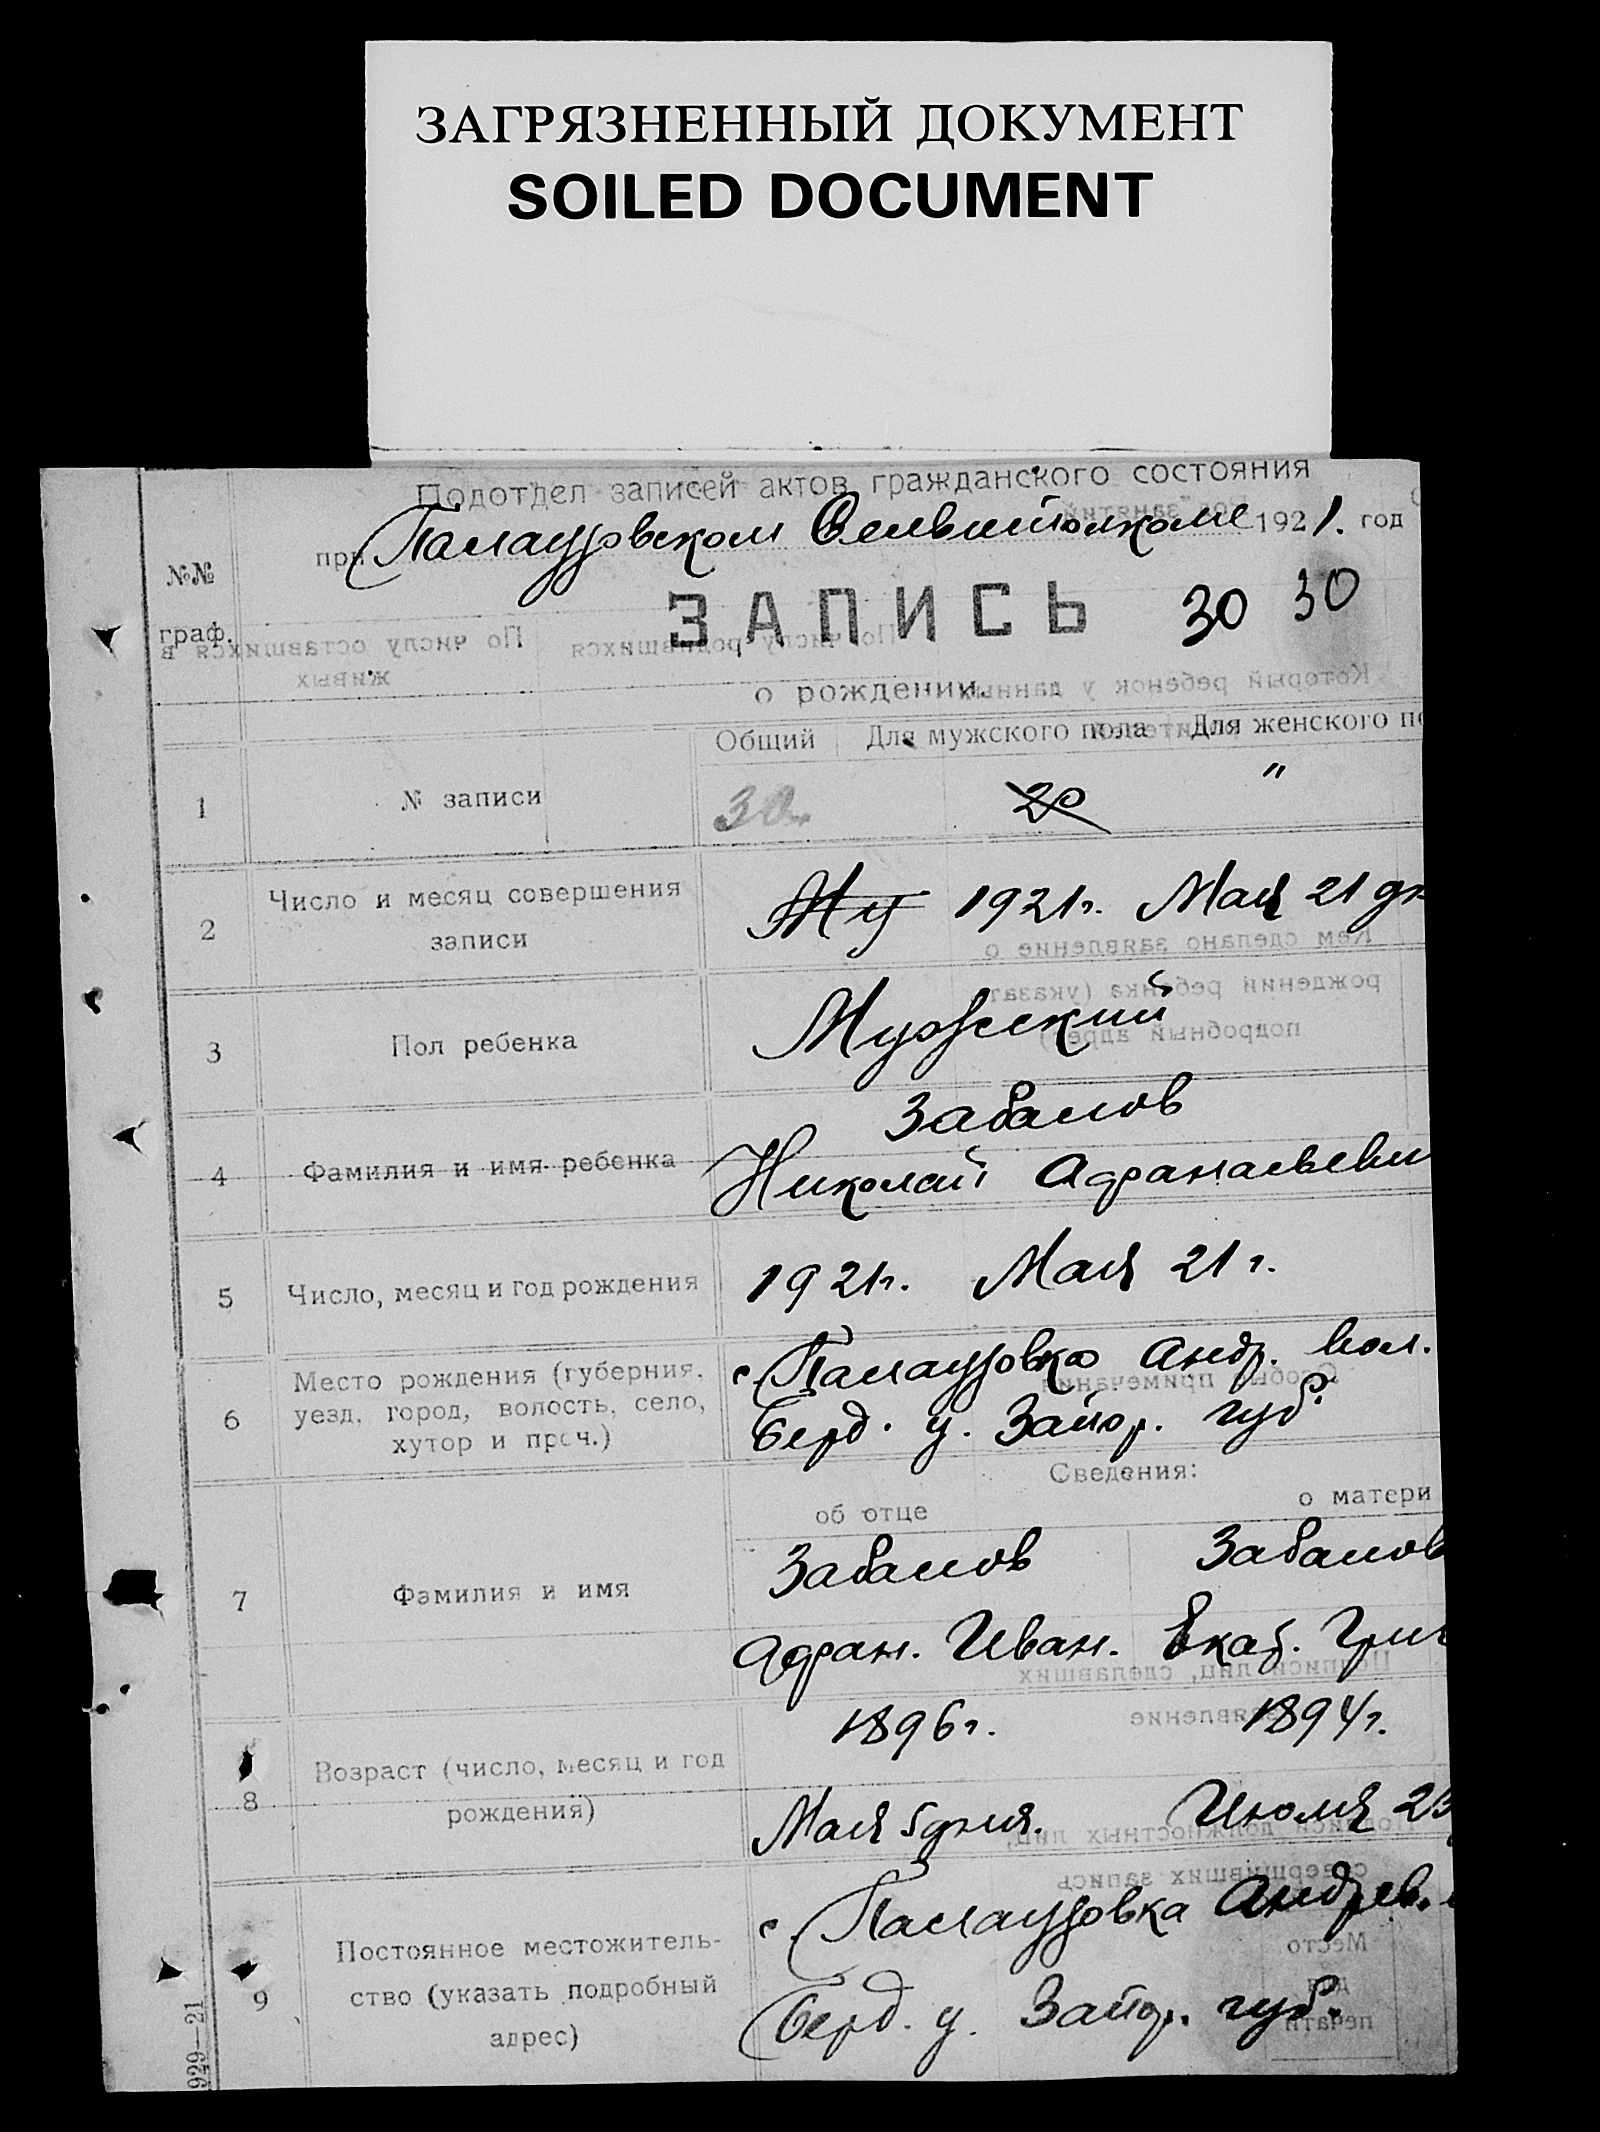 ЗАГРЯЗНЕННЫЙ ДОКУМЕНТ
SOILED DOCUMENT
Подотдел записей актов гражданского состояния
при Палаузовском 1921. год
№№
граф.
ЗАПИСЬ 30 30
о рождении.
Общий Для мужского пола Для женского по
1 № записи 30. 20 "
2 Число и месяц совершения
записи
Му 1921г. Мая 21 дн
3 Пол ребенка Мужеский
4 Фамилия и имя ребенка
Забалов
Николай Афанасьеви
5 Число, месяц и год рождения 1921г. Мая 21 г.
6 Место рождения (губерния,
уезд, город, волость, село,
хутор и проч.)
с. Палаузовка Андр. вол.
Берд. у. Запор. губ.
Сведения:
об отце о матери
7 Фамилия и имя
Забалов Забалов
Афан. Иван. Екат. Григ
8 Возраст (число, месяц и год
рождения)
1896г. 1894г.
Мая 5 дня. Июля
9 Постоянное местожитель-
ство (указать подробный
адрес)
с. Палаузовка Андрев.
Берд. у. Запор. губ.
929—21
По числу оставшихся в
живых
По числу родившихся
Который ребенок у данных
родителей
Кем сделано заявление о
рождении ребенка (указать
подробный адрес)
Особые примечания
Подписи лиц, сделавших
заявление
Подписи должностных лиц,
совершивших запись
Место
для
печати